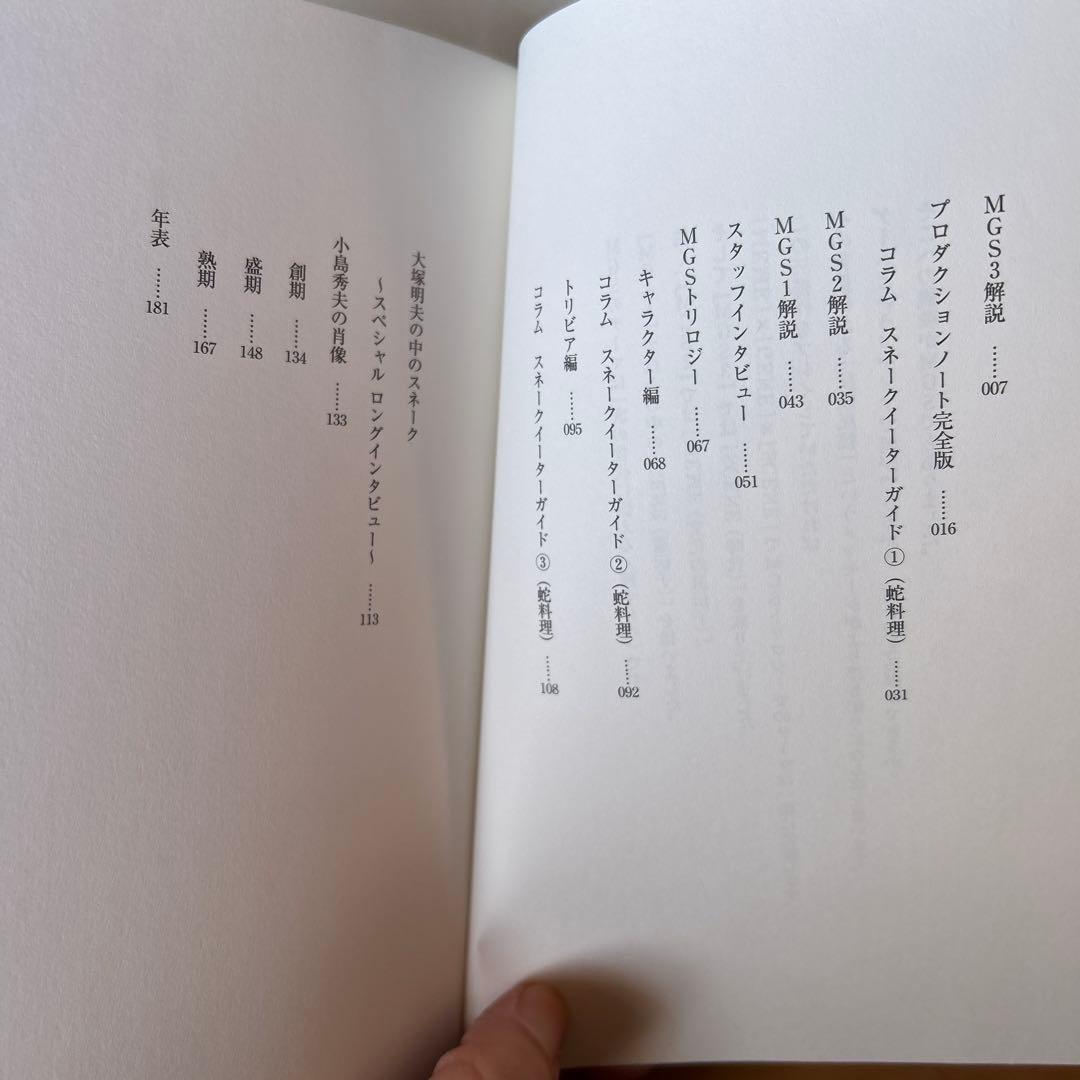 MGS3解説 ……007
プロダクションノート完全版 ……016
コラム スネークイーターガイド①(蛇料理) ……031
MGS2解説 ……035
MGS1解説 ……043
スタッフインタビュー ……051
MGSトリロジー ……067
キャラクター編 ……068
コラム スネークイーターガイド②(蛇料理) ……092
トリビア編 ……095
コラム スネークイーターガイド③(蛇料理) ……108
大塚明夫の中のスネーク
〜スペシャル ロングインタビュー〜 ……113
小島秀夫の肖像 ……133
創期 ……134
盛期 ……148
熟期 ……167
年表 ……181